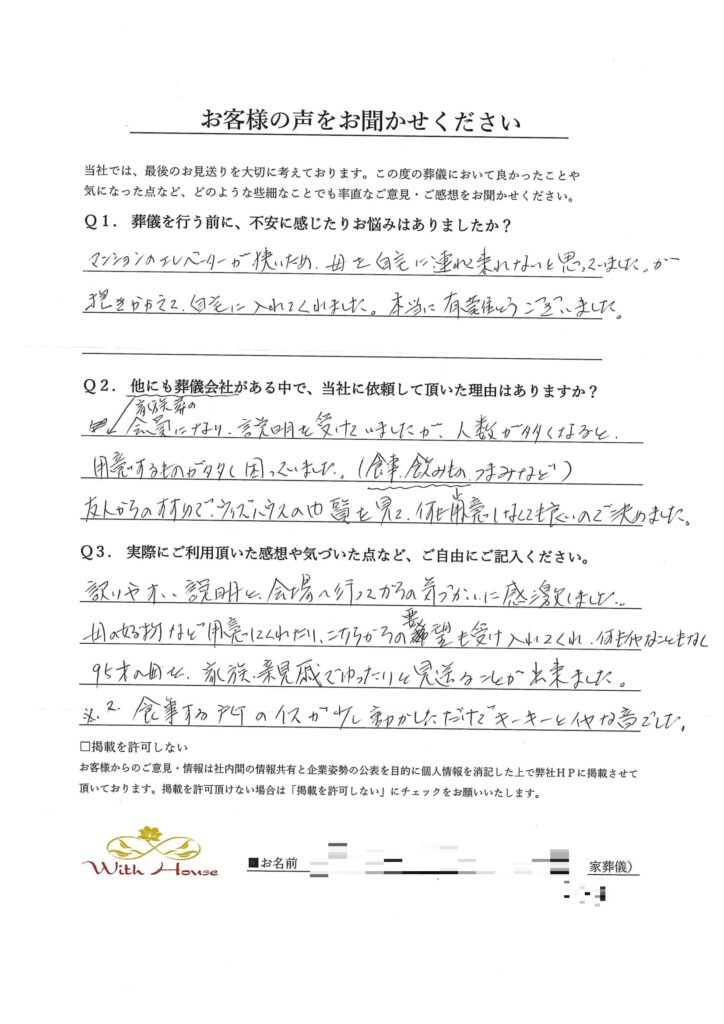 お客様の声をお聞かせください
当社では、最後のお見送りを大切に考えております。この度の葬儀において良かったことや
気になった点など、どのような些細なことでも率直なご意見・ご感想をお聞かせください。
Q1. 葬儀を行う前に、不安に感じたりお悩みはありましたか？
マンションのエレベーターが狭いため、母を自宅に連れて来れないと思っていました。が
抱きかかえて、自宅に入れてくれました。本当に有難とうございました。
Q2. 他にも葬儀会社がある中で、当社に依頼して頂いた理由はありますか？
家族葬の
会員になり、説明を受けていましたが、人数が多くなると、
用意するものが多く困っていました。(食事、飲みもの、つまみなど)
友人からのすすめで、ウィズハウスの内覧を見て、何も用意しなくても良いので決めました。
Q3. 実際にご利用頂いた感想や気づいた点など、ご自由にご記入ください。
説明と、会場へ行ってからの気づかいに感激しました。
母の好物など用意してくれたり、こちらからの要望も受け入れてくれ、何もいやなこともなく
95才の母を、家族、親見戚でゆったりと見送ることが出来ました。
※2. 食事する所のイスが少し動かしただけでキーキーとイヤな音でした。
□掲載を許可しない
お客様からのご意見・情報は社内間の情報共有と企業姿勢の公表を目的に個人情報を消記した上で弊社HPに掲載させて
頂いております。掲載を許可頂けない場合は「掲載を許可しない」にチェックをお願いいたします。
With House
■お名前 家葬儀）